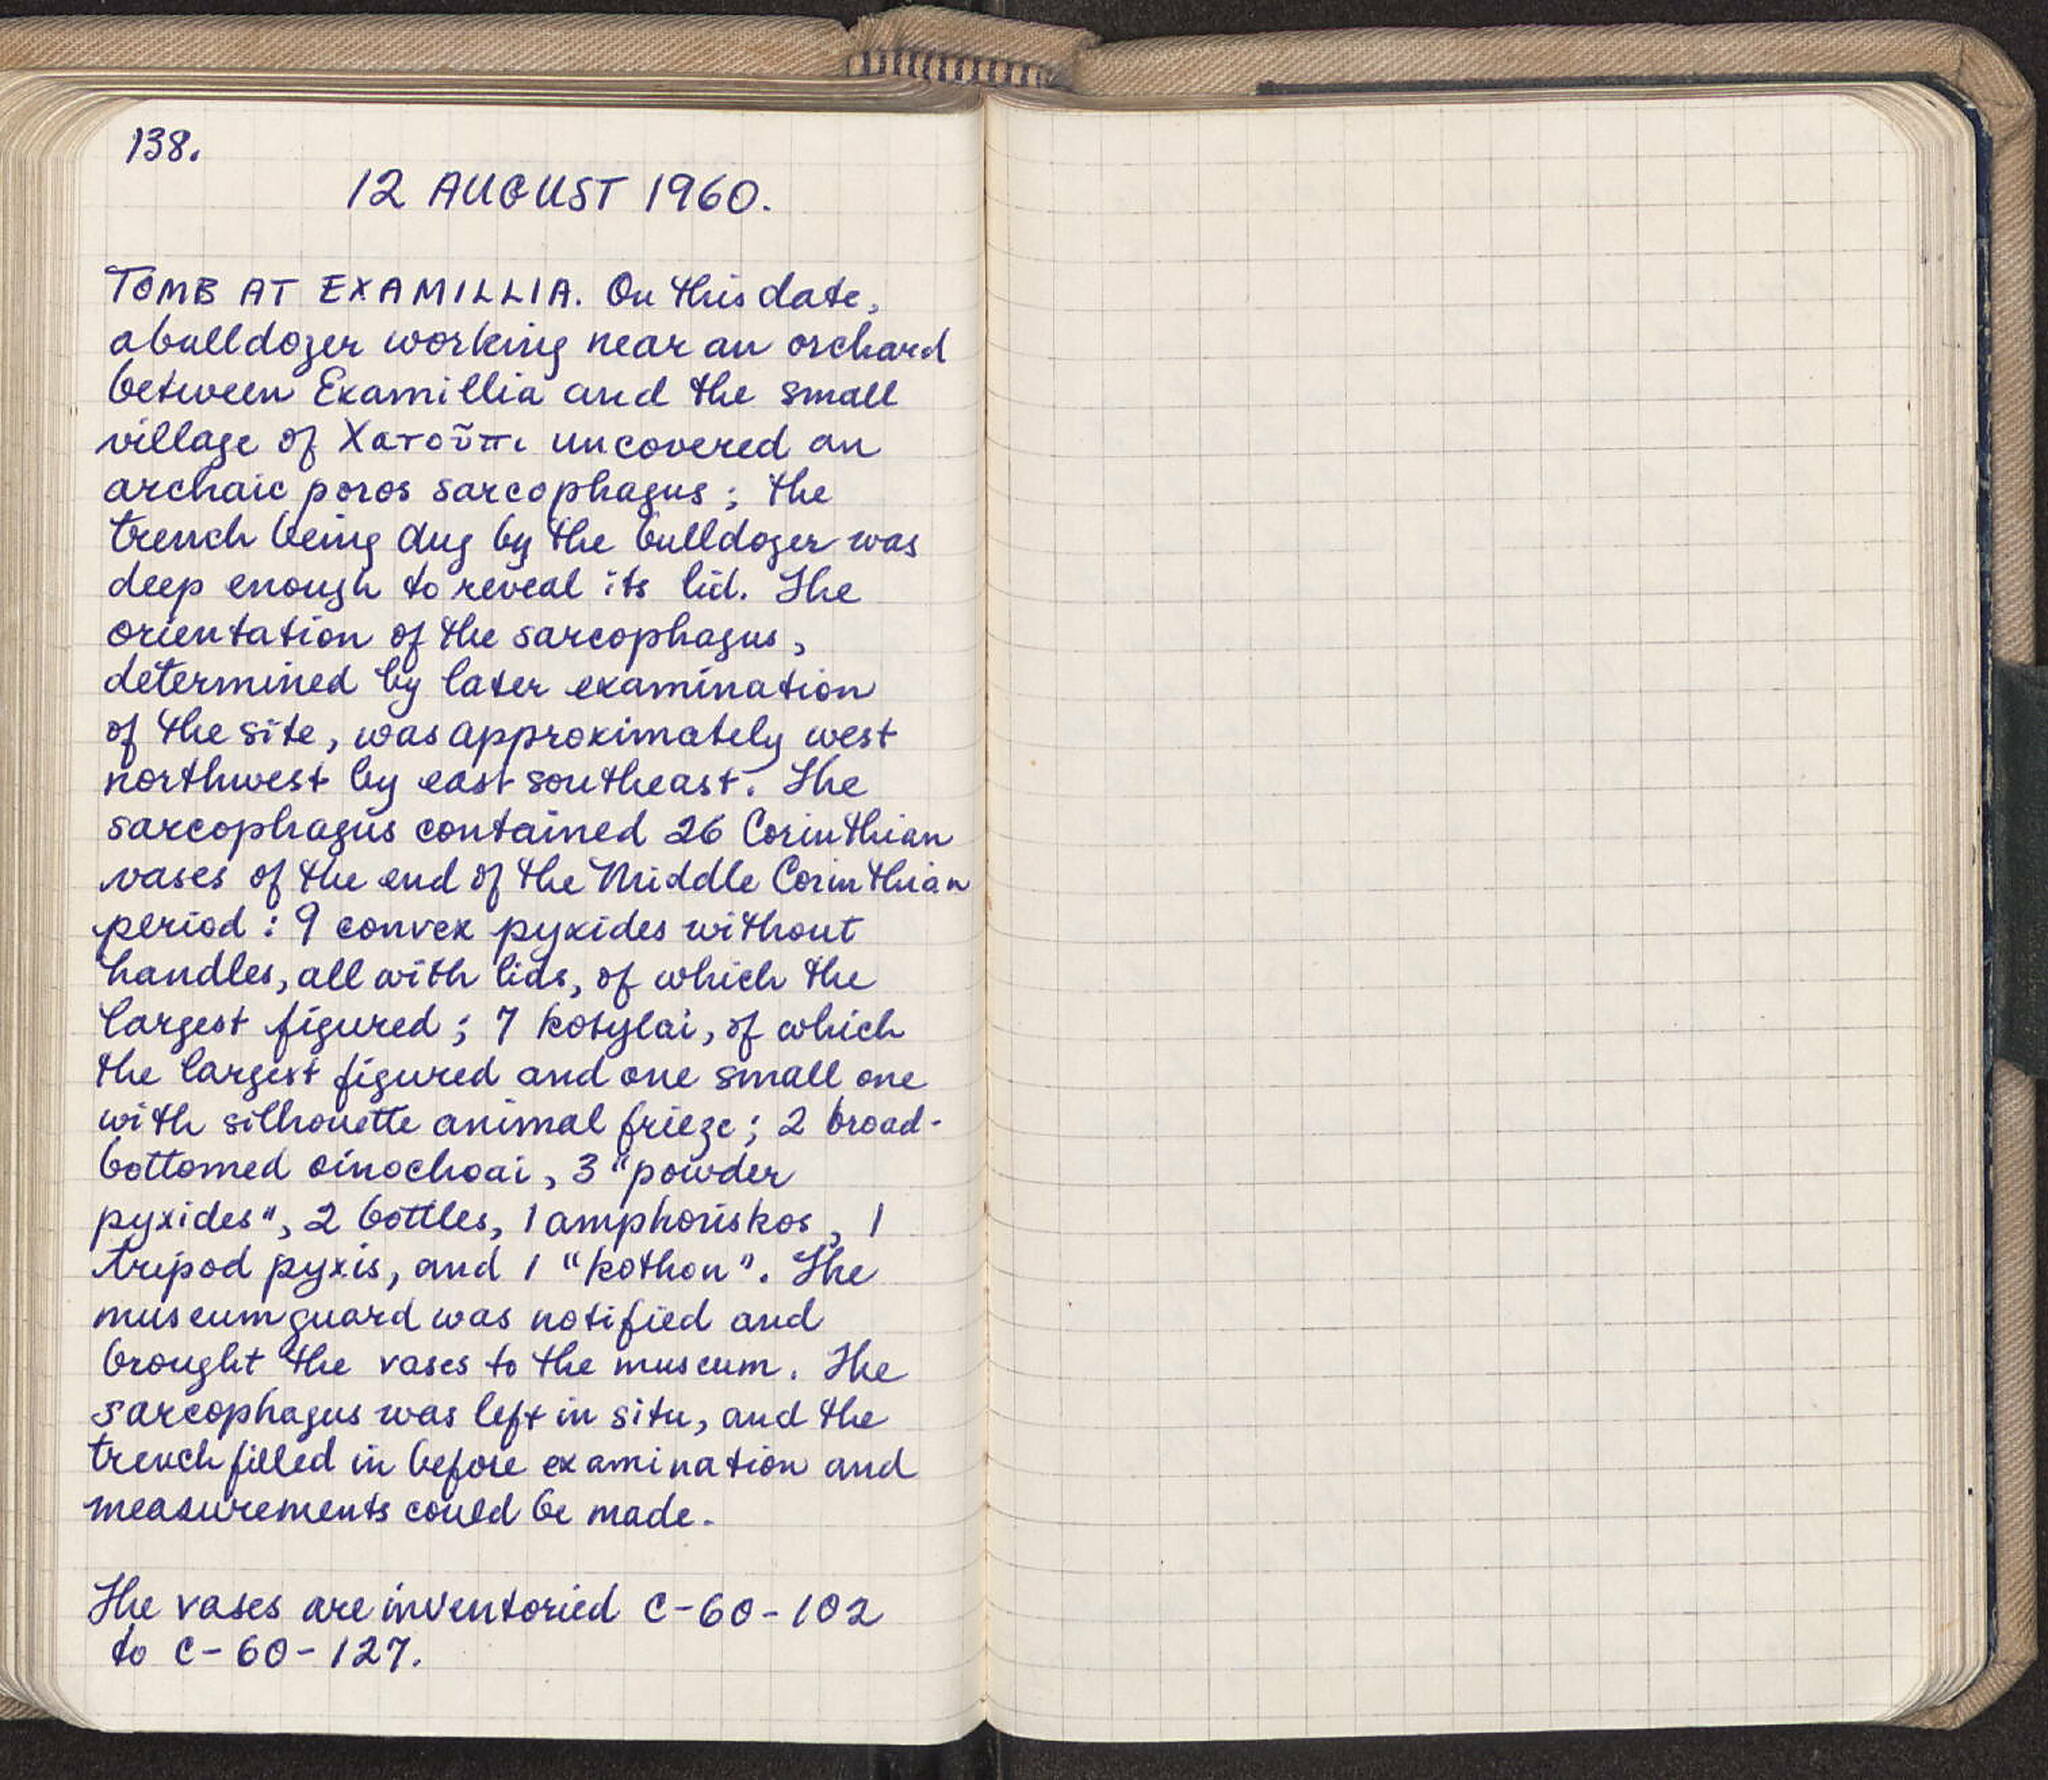 138.
12 AUGUST 1960.
TOMB AT EXAMILLIA. On this date,
a bulldozer working near an orchard
between Examillia and the small
village of Χατοῦπι uncovered an
archaic poros sarcophagus; the
trench being dug by the bulldozer was
deep enough to reveal its lid. The
orientation of the sarcophagus,
determined by later examination
of the site, was approximately west
northwest by east southeast. The
sarcophagus contained 26 Corinthian
vases of the end of the Middle Corinthian
period: 9 convex pyxides without
handles, all with lids, of which the
largest figured; 7 kotylai, of which
the largest figured and one small one
with silhouette animal frieze; 2 broad-
bottomed oinochoai, 3 "powder
pyxides", 2 bottles, 1 amphoriskos, 1
tripod pyxis, and 1 "kothon". The
museum guard was notified and
brought the vases to the museum. The
sarcophagus was left in situ, and the
trench filled in before examination and
measurements could be made.
The vases are inventoried C-60-102
to C-60-127.